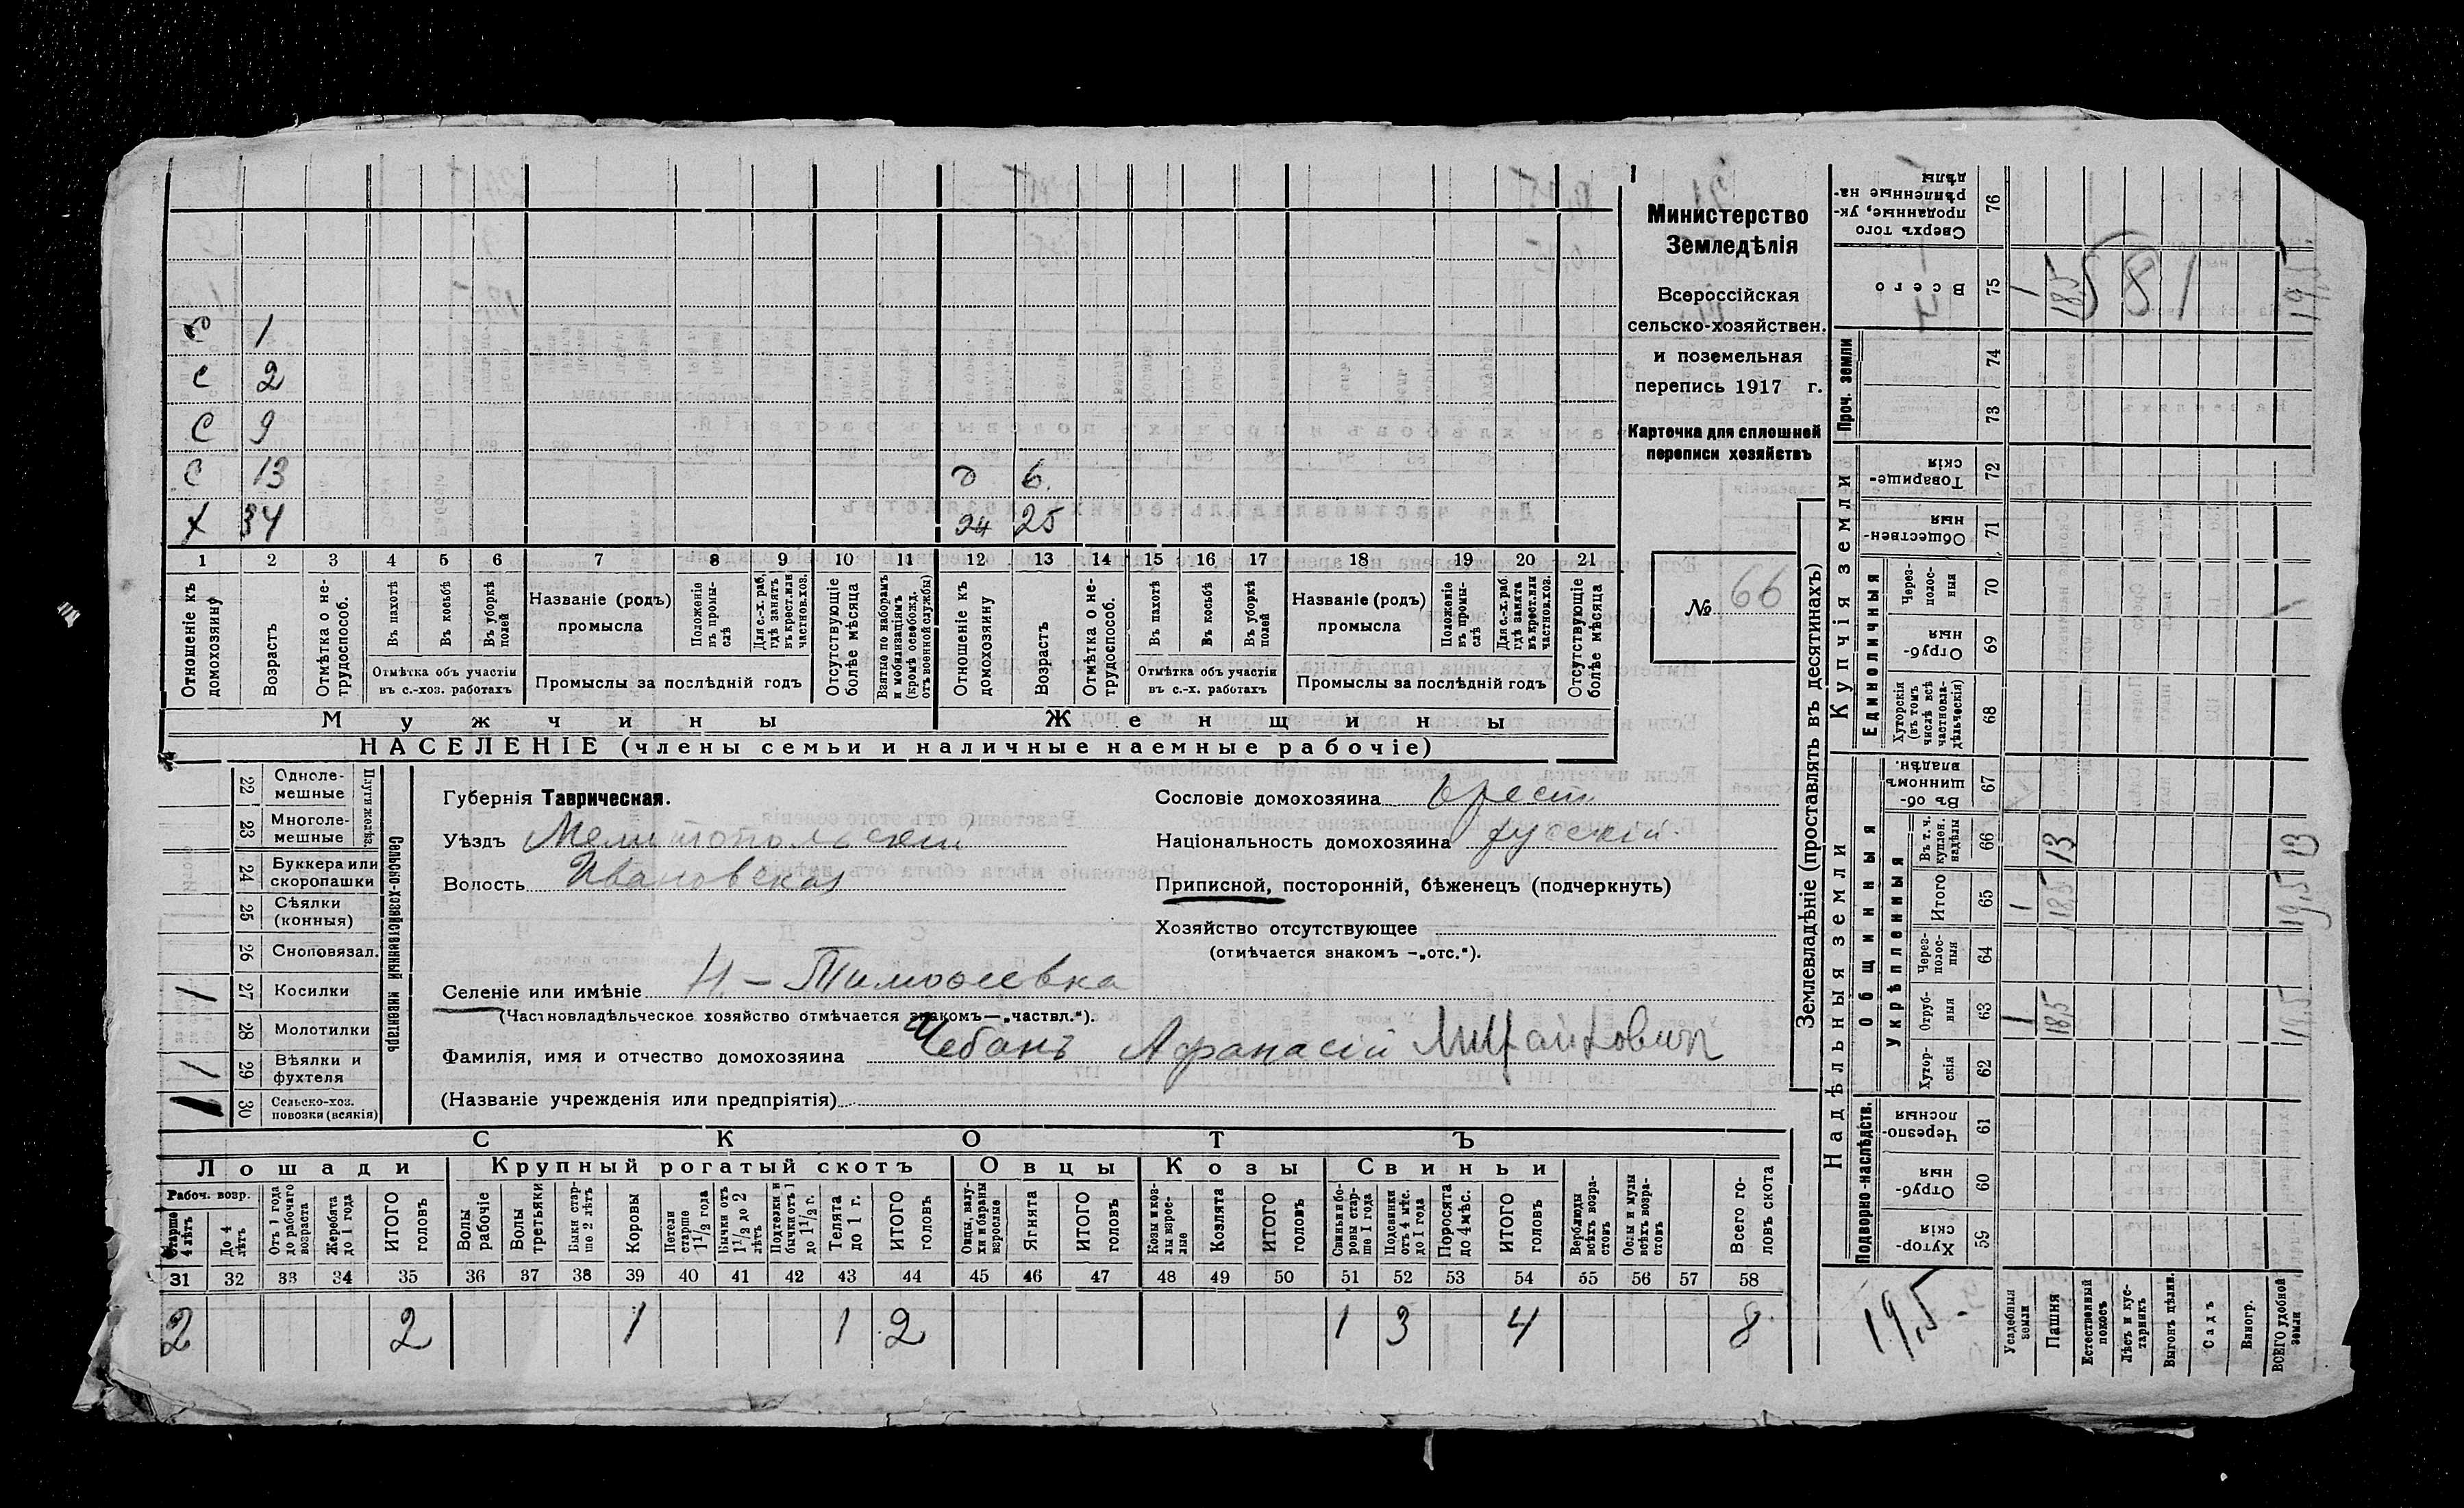 Министерство
Земледѣлія
Всероссійская
сельско-хозяйствен.
и поземельная
перепись 1917 г.
Карточка для сплошней
переписи хозяйствъ
№ 66
с 1
с 2
с 9
с 13 д 6.
х 34 25
1 2 3 4 5 6 7 8 9 10 11 12 13 14 15 16 17 18 19 20 21
Отношеніе къ домохозяину
Возрастъ
Отмѣтка о не-трудоспособ.
Въ пахотѣ
Въ косьбѣ
Въ уборкѣ полей
Отмѣтка объ участіи въ с.-хоз. работахъ
Названіе (родъ) промысла
Положеніе въ промы-слѣ
Для с.-х. раб. гдѣ занятъ въ крест. или частнов. хоз.
Промыслы за послѣдній годъ
Отсутствующіе болѣе мѣсяца
Взятые по наборамъ и мобилизаціямъ (кромѣ освобожд. отъ военной службы)
Отношеніе къ домохозяину
Возрастъ
Отмѣтка о не-трудоспособ.
Въ пахотѣ
Въ косьбѣ
Въ уборкѣ полей
Отмѣтка объ участіи въ с.-х. работахъ
Названіе (родъ) промысла
Положеніе въ промы-слѣ
Для с.-х. раб. гдѣ занята въ крест. или частнов. хоз.
Промыслы за послѣдній годъ
Отсутствующіе болѣе мѣсяца
Мужчины Женщины
НАСЕЛЕНІЕ (члены семьи и наличные наемные рабочіе)
Сельско-хозяйственный инвентарь
Плуги желѣз.
22 Одноле-мешные
23 Многоле-мешные
24 Буккера или скоропашки
25 Сѣялки (конныя)
26 Сноповязал.
1 27 Косилки
28 Молотилки
1 29 Вѣялки и фухтеля
1 30 Сельско-хоз. повозки (всякія)
Губернія Таврическая.
Уѣздъ Мелитопольскій
Волость Ивановская
Сословіе домохозяина крест.
Національность домохозяина русскій
Приписной, посторонній, бѣженецъ (подчеркнуть)
Хозяйство отсутствующее
(отмѣчается знакомъ -„отс.“).
Селеніе или имѣніе Н. - Тимофеевка
(Частновладѣльческое хозяйство отмѣчается знакомъ—„частвл.“).
Фамилія, имя и отчество домохозяина Чебанъ Афанасій Михайлович
(Названіе учрежденія или предпріятія)
СКОТЪ
Лошади Крупный рогатый скотъ Овцы Козы Свиньи
Рабоч. возр.
Старше 4 лѣтъ
До 4 лѣтъ
Отъ 1 года до рабочаго возраста
Жеребята до 1 года
ИТОГО головъ
Волы рабочіе
Волы третьяки
Быки стар-ше 2 лѣтъ
Коровы
Нетели старше 1 1/2 года
Бычки отъ 1 1/2 до 2 лѣтъ
Подтелки и бычки отъ 1 до 1 1/2 г.
Телята до 1 г.
ИТОГО головъ
Овцы, валу-хи и бараны взрослые
Ягнята
ИТОГО головъ
Козы и коз-лы взрос-лые
Козлята
ИТОГО головъ
Свиньи и бо-ровы стар-ше 1 года
Подсвинки отъ 4 мѣс. до 1 года
Поросята до 4 мѣс.
ИТОГО головъ
Верблюды всѣхъ возра-стовъ
Ослы и мулы всѣхъ возра-стовъ
Всего го-ловъ скота
31 32 33 34 35 36 37 38 39 40 41 42 43 44 45 46 47 48 49 50 51 52 53 54 55 56 57 58
2 2 1 1 2 1 3 4 8
Землевладѣніе (проставлять въ десятинахъ)
Надѣльныя земли Купчія земли Проч. земли
Подворно-наслѣдств. Общинныя Укрѣпленныя Единоличныя
76 Сверхъ того проданные, ук-рѣпленные на-дѣлы
75 Всего 1 18,5 19,5
74
73
72 Товарище-скія
71 Обществен-ныя
70 Через-полос-ныя
69 Отруб-ныя
68 Хуторскія (въ томъ числѣ всѣ частновла-дѣльческія)
67 Въ об-щинномъ владѣн.
66 Въ т. ч. куплен. надѣлы 13 13
65 Итого 1 18,5 19,5
64 Через-полос-ныя
63 Отруб-ныя 1 18,5 19,5
62 Хутор-скія
61 Черезпо-лосныя
60 Отруб-ныя
59 Хутор-скія
19,5
Усадебныя земли
Пашня
Естественный покосъ
Лѣсъ и кус-тарникъ
Выгонъ цѣлин.
Садъ
Виногр.
ВСЕГО удобной земли